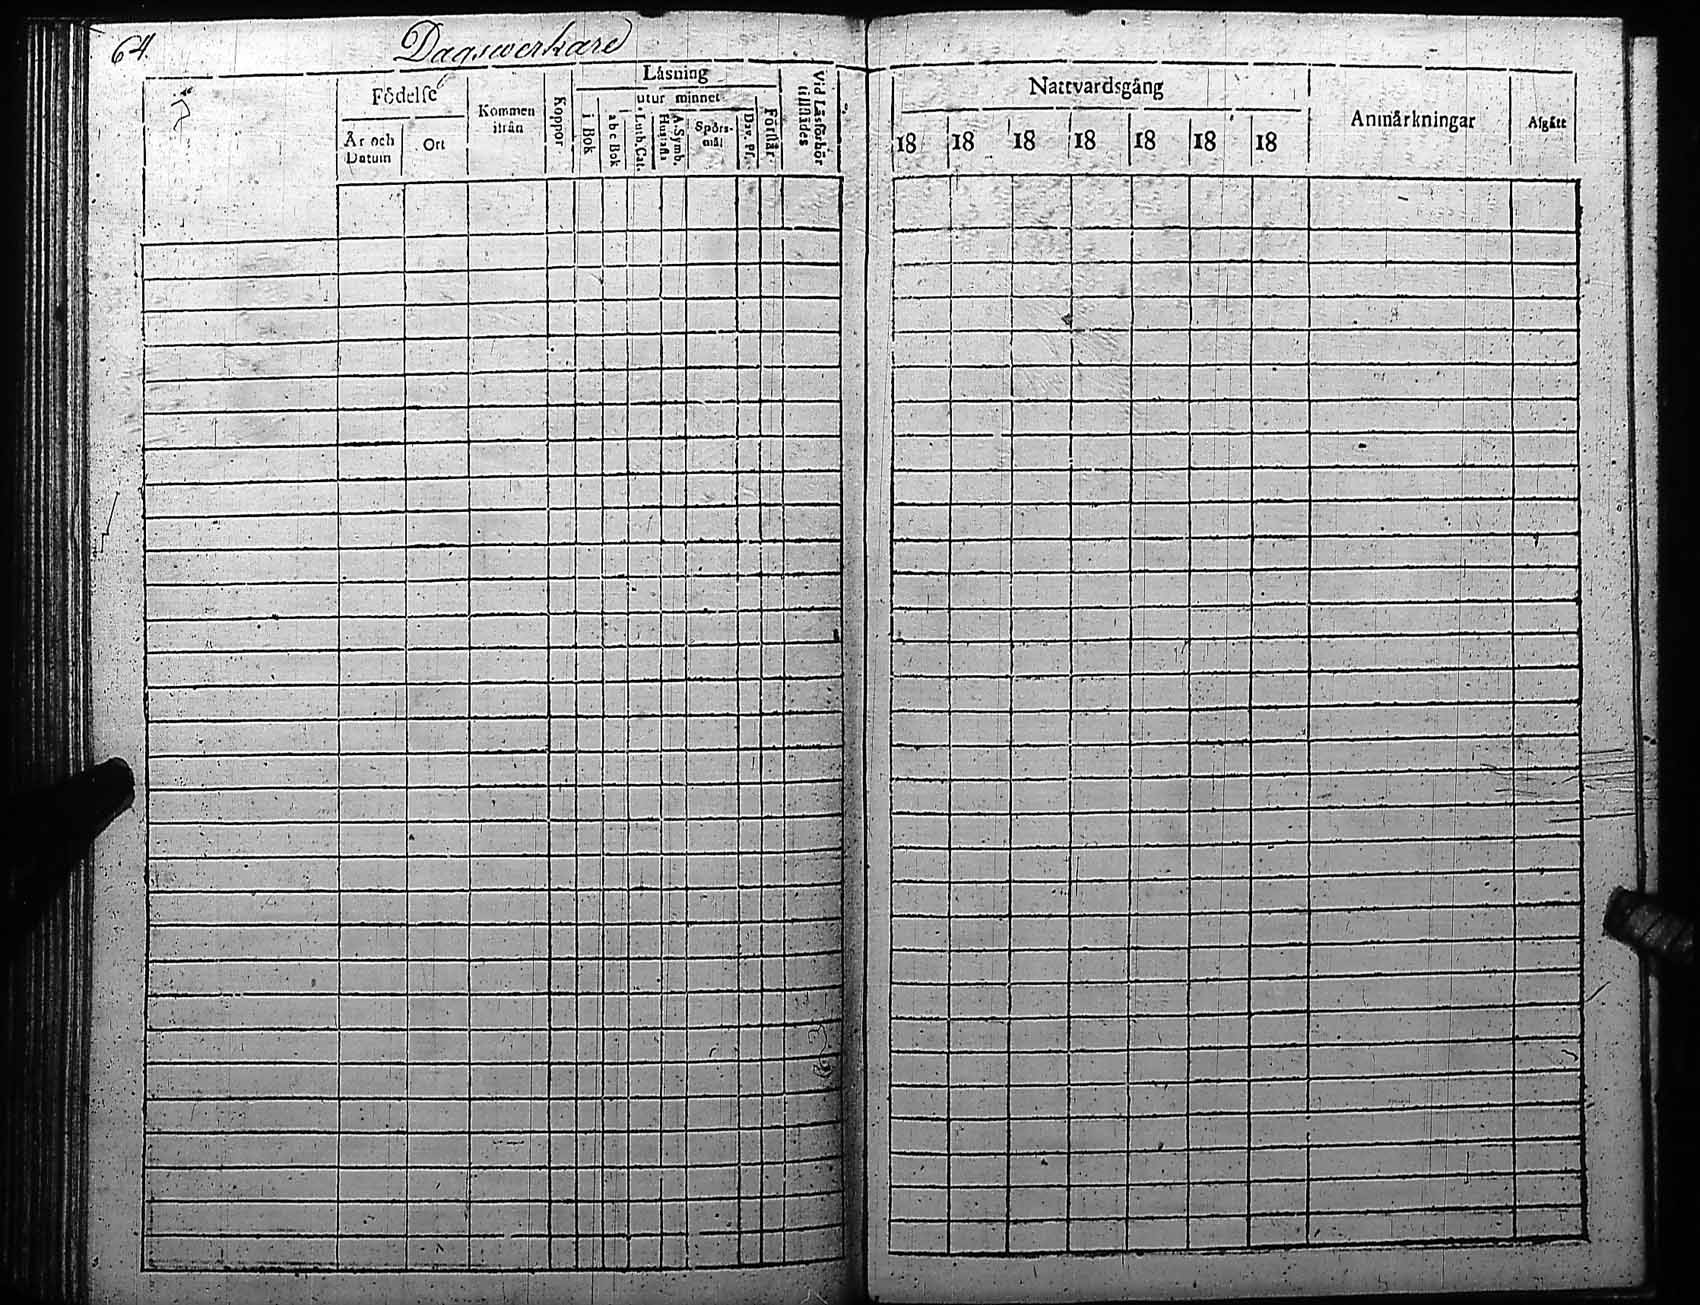 64.
Dagswerkare
Födelse
År och Datum
Ort
Kommen ifrån
Koppor
Läsning
i Bok
utur minnet
abc Bok
Luth. Cat.
Hustafla
A. Symb.
Spörsmål
Dav. Ps.
Förstår
Vid Läsförhör tillstädes
Nattvardsgång
18 18 18 18 18 18 18
Anmärkningar
Afgått